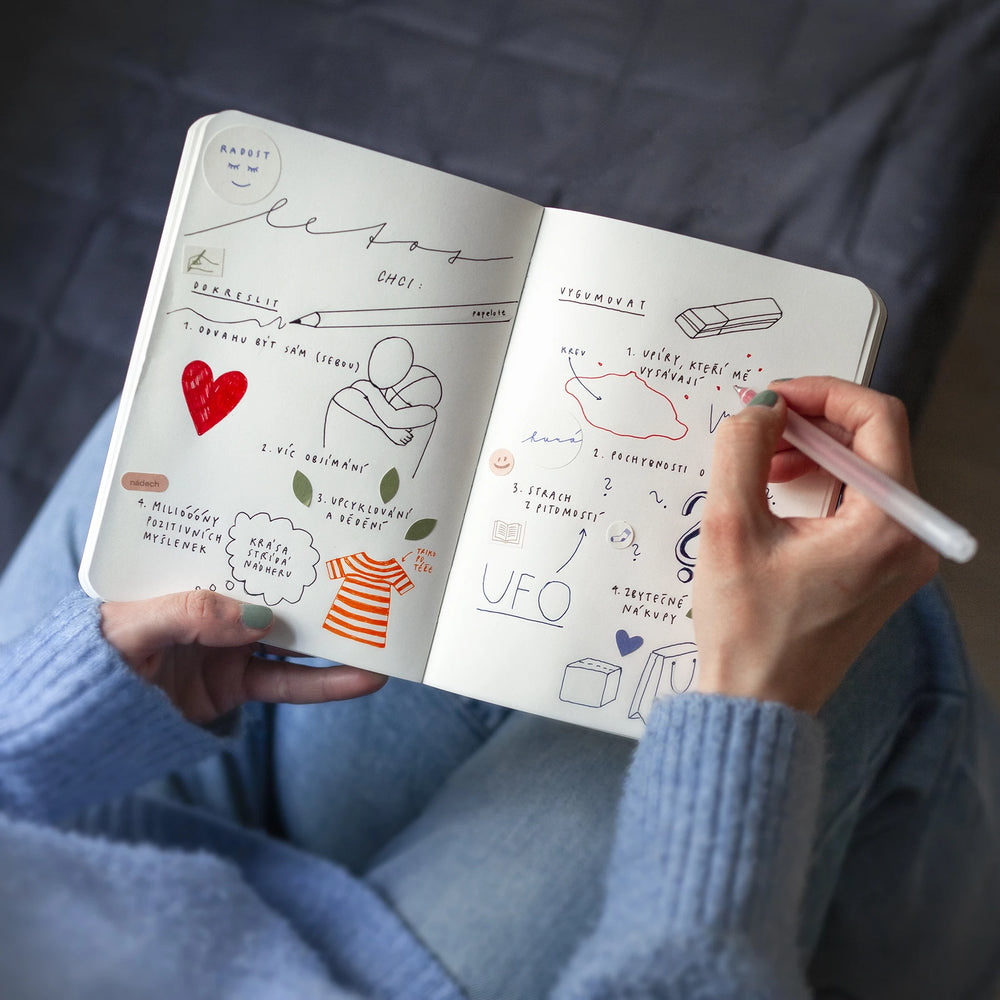 RADOST
letos
CHCI:
DOKRESLIT
papelote
1. ODVAHU BÝT SÁM (SEBOU)
2. VÍC OBJÍMÁNÍ
nádech
3. UPCYKLOVÁNÍ
A DĚDĚNÍ
4. MILIÓÓÓNY
POZITIVNÍCH
MYŠLENEK
KRÁSA
STŘÍDÁ
NÁDHERU
TRIKO
PO
TÉTĚ
VYGUMOVAT
1. UPÍRY, KTEŘÍ MĚ
VYSÁVAJÍ
KREV
2. POCHYBNOSTI O
?
?
?
3. STRACH
Z PITOMOSTÍ
UFO
4. ZBYTEČNÉ
NÁKUPY